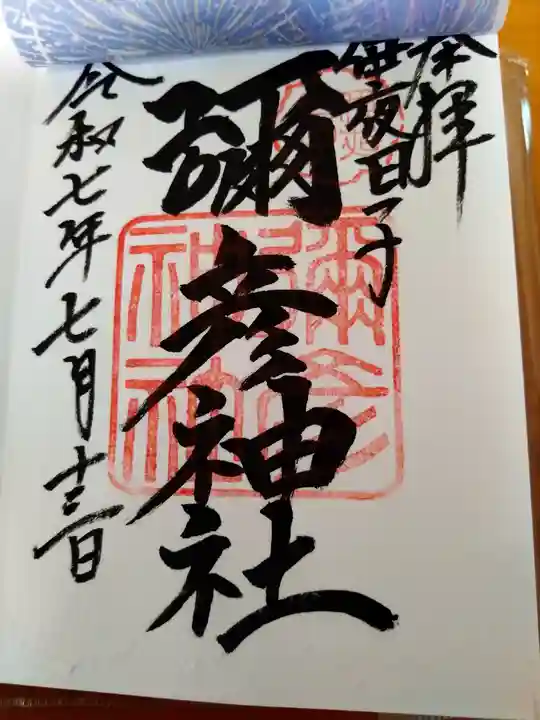 奉拝
伊夜日子
彌彦神社
彌彦
神社
令和七年七月十三日